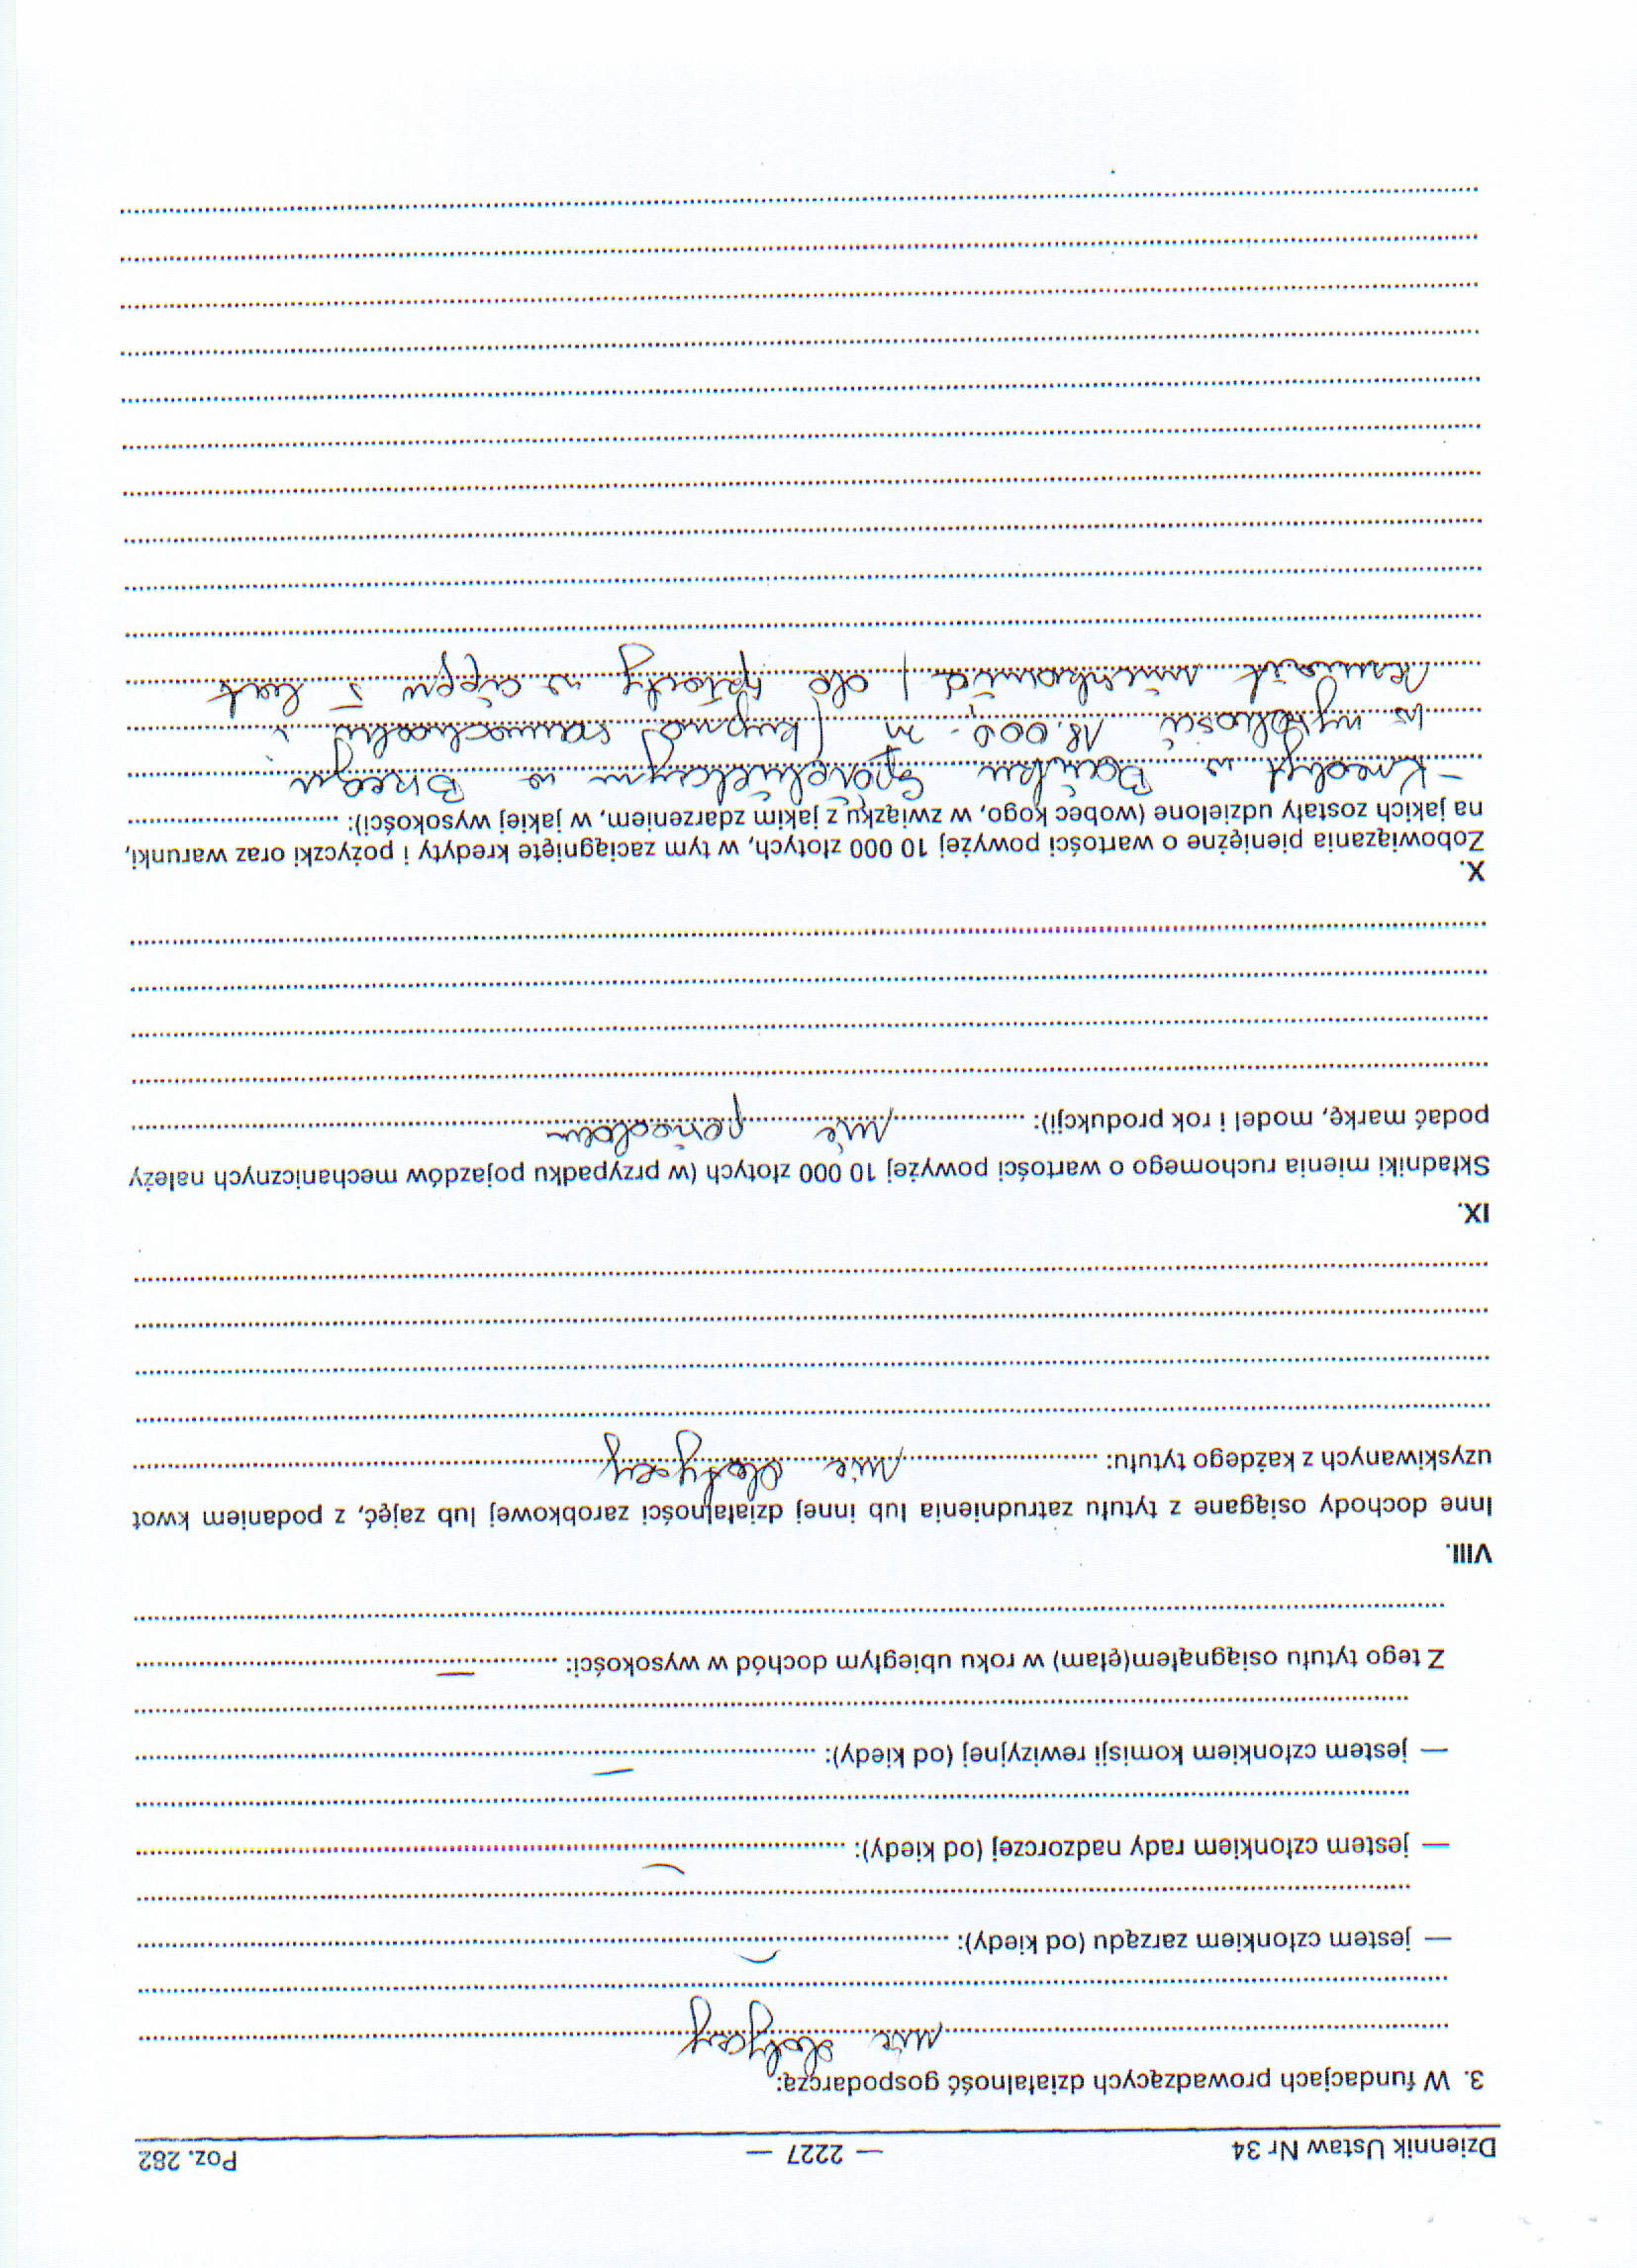 Dziennik Ustaw Nr 34 — 2227 — Poz. 282
3. W fundacjach prowadzących działalność gospodarczą:
nie dotyczy
— jestem członkiem zarządu (od kiedy): —
— jestem członkiem rady nadzorczej (od kiedy): —
— jestem członkiem komisji rewizyjnej (od kiedy): —
Z tego tytułu osiągnąłem(ęłam) w roku ubiegłym dochód w wysokości: —
VIII.
Inne dochody osiągane z tytułu zatrudnienia lub innej działalności zarobkowej lub zajęć, z podaniem kwot
uzyskiwanych z każdego tytułu: nie dotyczy
IX.
Składniki mienia ruchomego o wartości powyżej 10 000 złotych (w przypadku pojazdów mechanicznych należy
podać markę, model i rok produkcji): nie posiadam
X.
Zobowiązania pieniężne o wartości powyżej 10 000 złotych, w tym zaciągnięte kredyty i pożyczki oraz warunki,
na jakich zostały udzielone (wobec kogo, w związku z jakim zdarzeniem, w jakiej wysokości):
– Kredyt w Banku Spółdzielczym w Brzegu
w wysokości 18.000.- zł (kupno samochodu i
remont mieszkania) do spłaty w ciągu 5 lat